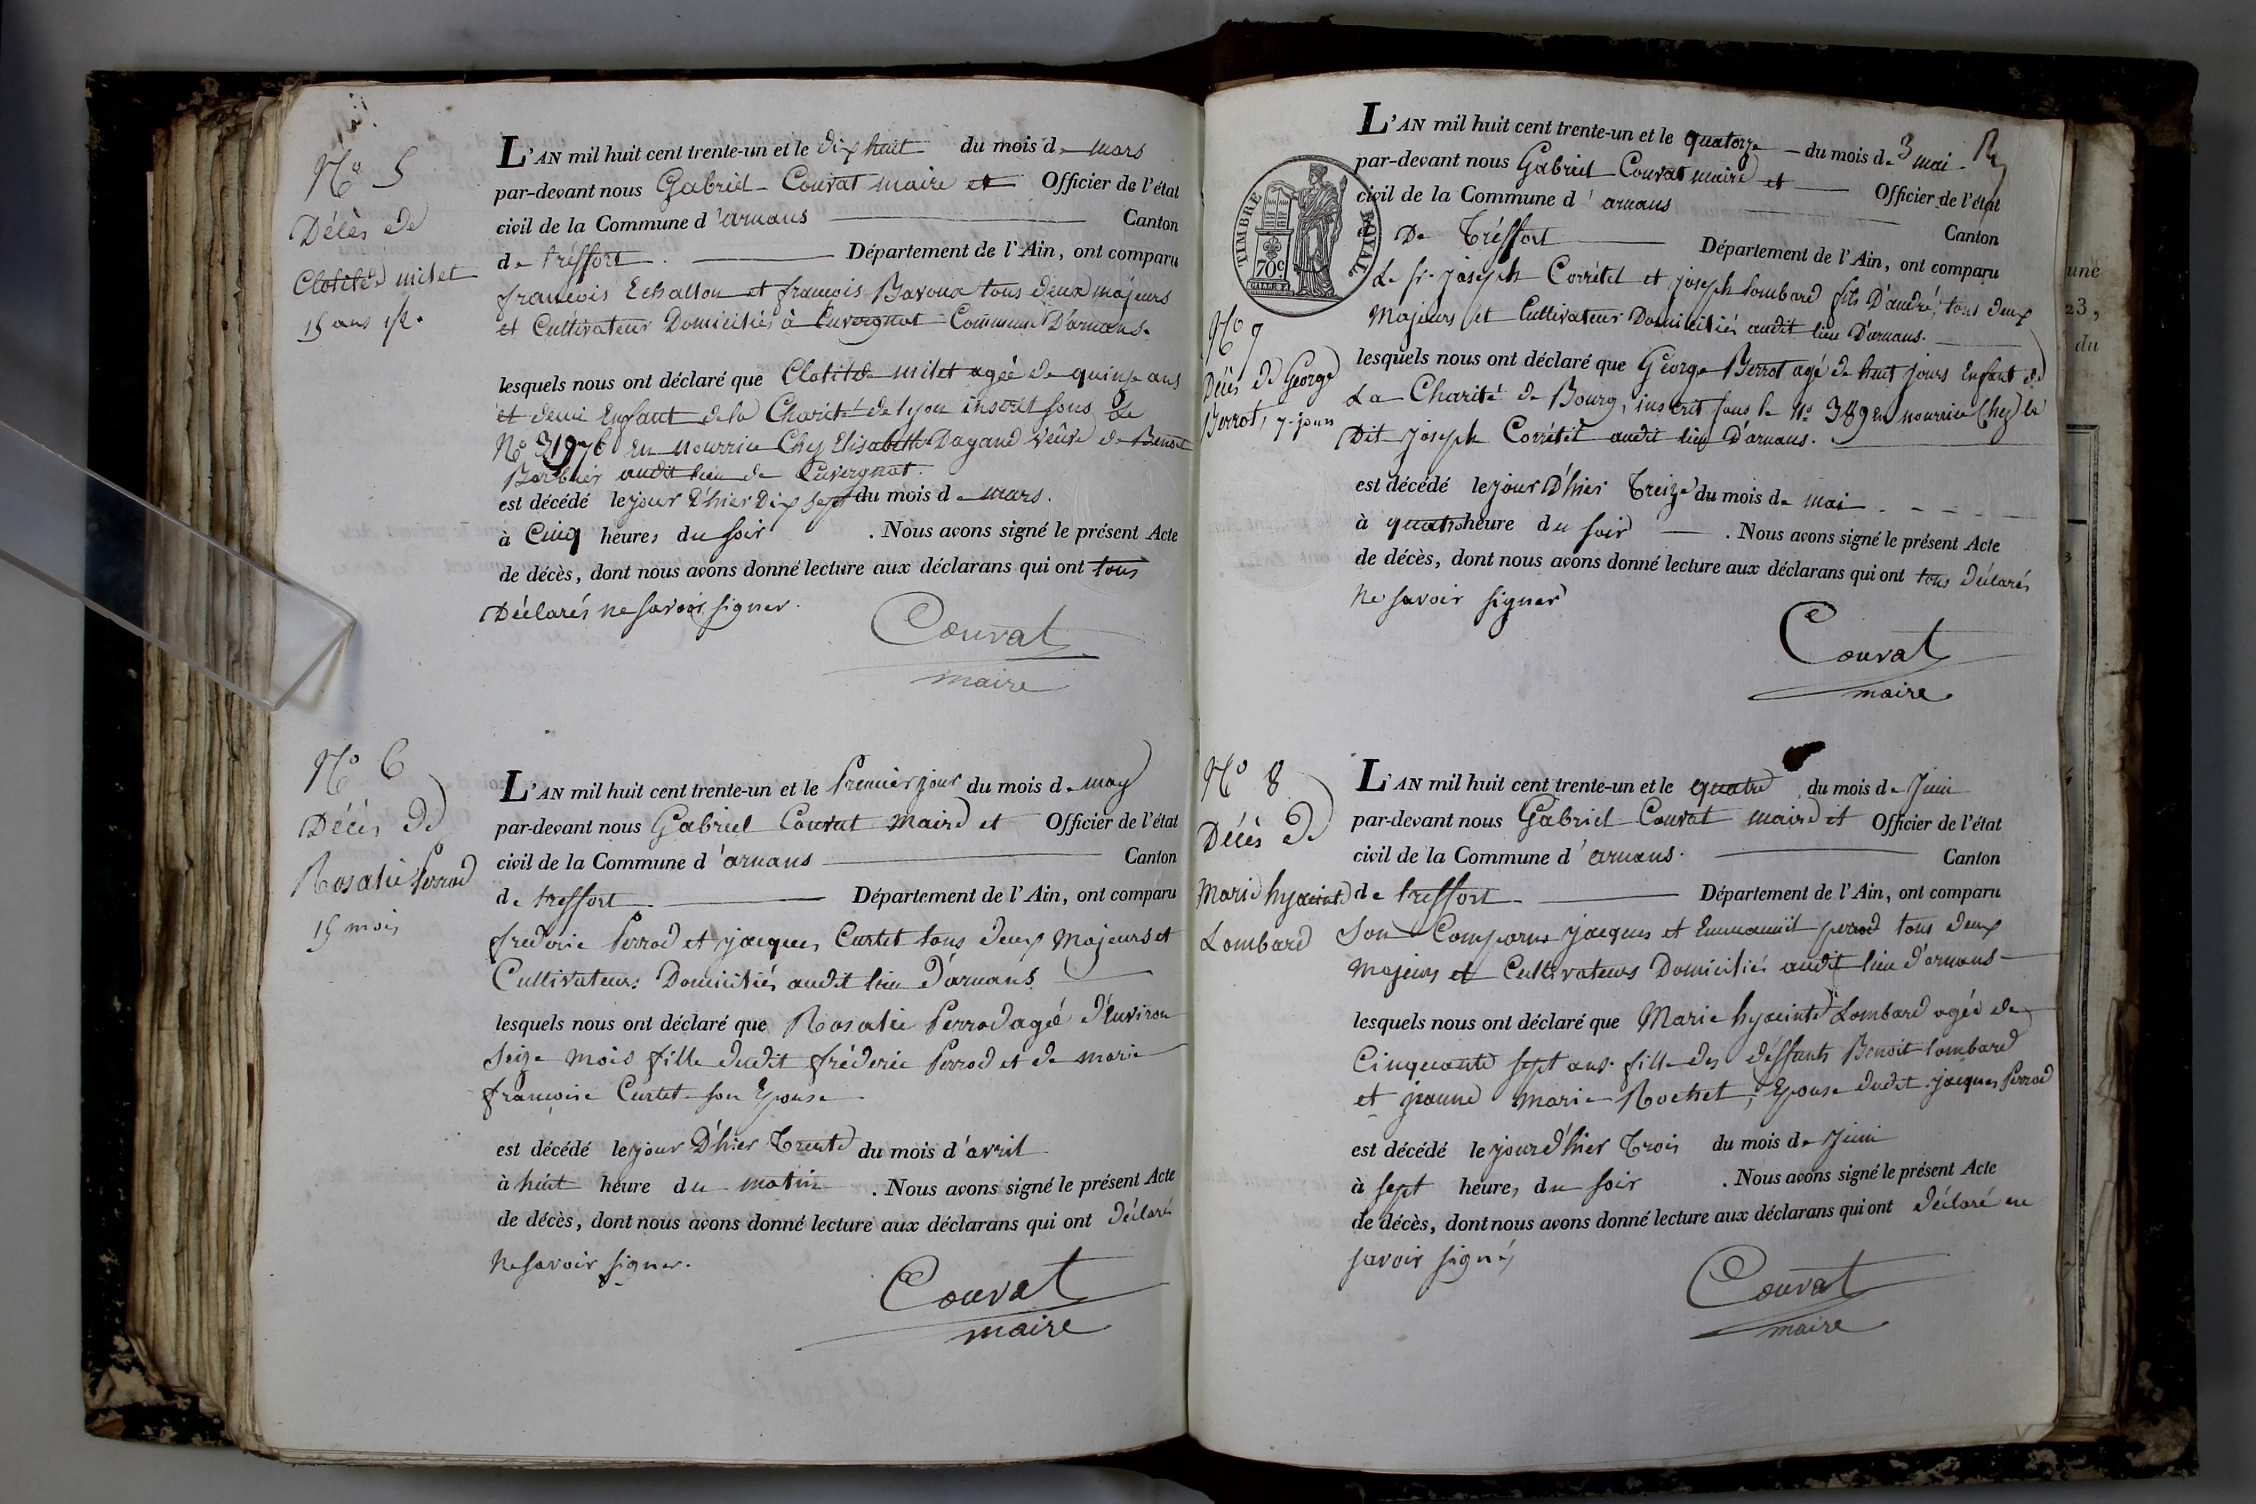 N.° 5
Décès de
Clotilde milet
15 ans 1/2.
L'AN mil huit cent trente-un et le dix huit du mois de mars
par-devant nous Gabriel Couvat maire et Officier de l'état
civil de la Commune d'arnans Canton
de tréffort Département de l'Ain, ont comparu
francois Echallon et francois Bavoux tous deux majeurs
et Cultivateur Domiciliés à Cuvergnat Commune D'arnans.
lesquels nous ont déclaré que Clotilde milet agée de quinze ans
et demi Enfant de la Charité de lyon inscrit sous Le
N° 31976 En nourrice Chez Elisabeth Dagand veuve de Benoit
Barbier audit lieu de Cuvergnat.
est décédé le jour D'hier Dix sept du mois de mars.
à Cinq heures du soir . Nous avons signé le présent Acte
de décès, dont nous avons donné lecture aux déclarans qui ont tous
Déclarés ne savoir signer.
Couvat
maire
N.° 6
Décès de
Rosalie Perrod
15 mois
L'AN mil huit cent trente-un et le Premier jour du mois de may
par-devant nous Gabriel Couvat Maire et Officier de l'état
civil de la Commune d'arnans Canton
de treffort Département de l'Ain, ont comparu
frederic Perrod et jacques Curtet tous deux Majeurs et
Cultivateurs Domiciliés audit lieu D'arnans
lesquels nous ont déclaré que Rosalie Perrod agée d'Environ
Seize mois fille dudit fréderic Perrod et de marie
françoise Curtet son Epouse
est décédé le jour D'hier Trente du mois d'avril
à huit heure du matin . Nous avons signé le présent Acte
de décès, dont nous avons donné lecture aux déclarans qui ont déclaré
Ne savoir signer.
Couvat
maire
TIMBRE ROYAL
70c
N.° 7
Décès de George
Perrot, 7 jours
L'AN mil huit cent trente-un et le quatorze du mois de mai
par-devant nous Gabriel Couvat maire et Officier de l'état
civil de la Commune d'arnans Canton
De Tréffort Département de l'Ain, ont comparu
Le sr. joseph Corrétel et joseph Lombard fils D'andré, tous deux
Majeurs et Cultivateurs Domiciliés audit lieu D'arnans.
lesquels nous ont déclaré que George Perrot agé de huit jours Enfant de
La Charité de Bourg, inscrit sous le N° 389 en nourrice Chez le
Dit joseph Corrétel audit lieu D'arnans.
est décédé le jour D'hier Treize du mois de mai
à quatre heure du soir . Nous avons signé le présent Acte
de décès, dont nous avons donné lecture aux déclarans qui ont tous Déclarés
Ne savoir signer
Couvat
maire
N.° 8
Décès de
Marie hyacinte
Lombard
L'AN mil huit cent trente-un et le quatre du mois de Juin
par-devant nous Gabriel Couvat maire et Officier de l'état
civil de la Commune d'arnans. Canton
de treffort Département de l'Ain, ont comparu
Son Comparus jacques et Emmanuël perrod tous deux
Majeurs et Cultivateurs Domiciliés audit lieu d'arnans
lesquels nous ont déclaré que Marie hyacinte Lombard agée de
Cinquante sept ans. fille des déffunts Benoit lombard
et jeanne Marie Rochet, Epouse dudit jacques Perrod
est décédé le jour d'hier Trois du mois de Juin
à sept heures du soir . Nous avons signé le présent Acte
de décès, dont nous avons donné lecture aux déclarans qui ont déclaré ne
savoir signé
Couvat
maire
une
23,
du